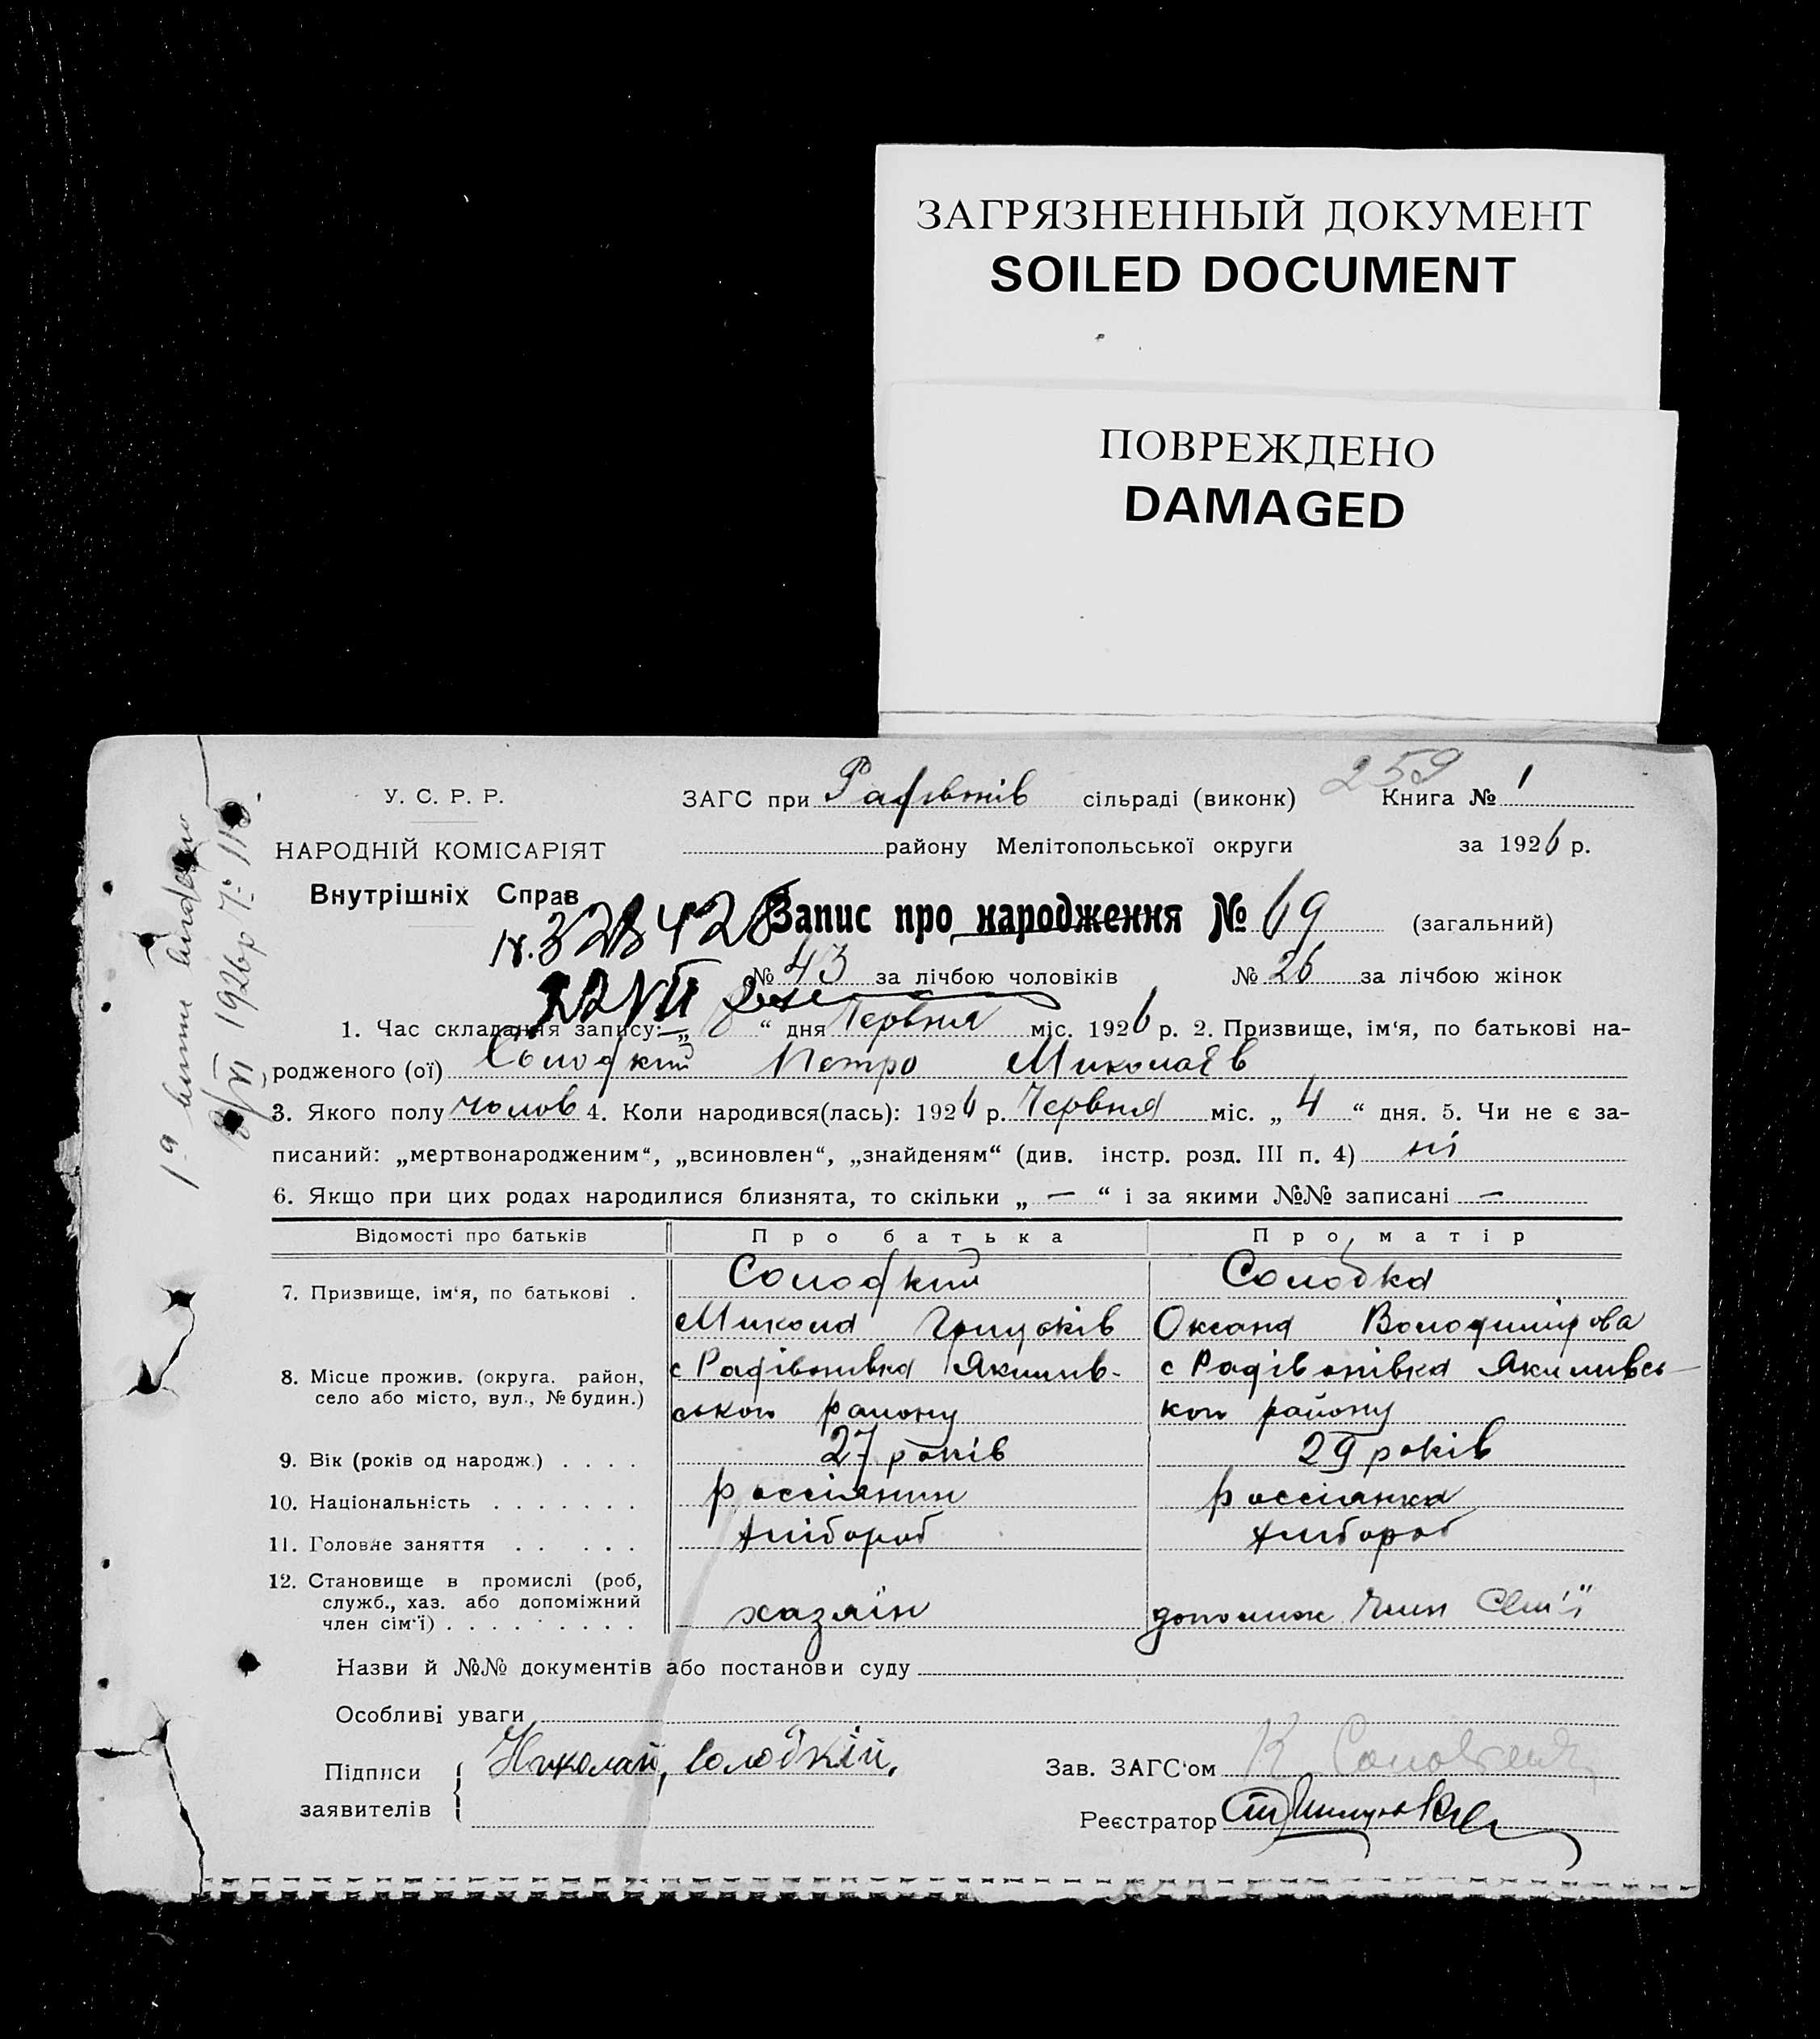 ЗАГРЯЗНЕННЫЙ ДОКУМЕНТ
SOILED DOCUMENT
ПОВРЕЖДЕНО
DAMAGED
259
У. С. Р. Р.
ЗАГС при сільраді (виконк) Книга № 1
НАРОДНІЙ КОМІСАРІЯТ
району Мелітопольської округи за 1926 р.
Внутрішніх Справ
Запис про народження № 69 (загальний)
№ 43 за лічбою чоловіків № 26 за лічбою жінок
1. Час складання запису: „ 8 “ дня Червня міс. 1926 р. 2. Призвище, ім'я, по батькові на-
родженого (ої) Солодкий Петро Миколаїв
3. Якого полу чолов 4. Коли народився(лась): 1926 р. Червня міс. „ 4 “ дня. 5. Чи не є за-
писаний: „мертвонародженим“, „всиновлен“, „знайденям“ (див. інстр. розд. III п. 4) ні
6. Якщо при цих родах народилися близнята, то скільки „ — “ і за якими №№ записані —
Відомості про батьків Про батька Про матір
7. Призвище, ім'я, по батькові . Солодкий Солодка
Микола Оксана Володимірова
8. Місце прожив. (округа. район, село або місто, вул., № будин.) с Радівонівка Якимив- с Радівонівка Якимивсь-
ського району кого району
9. Вік (років од народж.) . . . . 27 років 29 років
10. Національність . . . . . . . россіянин россіянка
11. Головне заняття . . . . . хлібороб хлібороб
12. Становище в промислі (роб, служб., хаз. або допоміжний член сім'ї) . . . . . . . . . хазяїн допоміж член сем'ї
Назви й №№ документів або постанови суду
Особливі уваги
Підписи заявителів Николай Солодкій.
Зав. ЗАГС'ом
Реєстратор